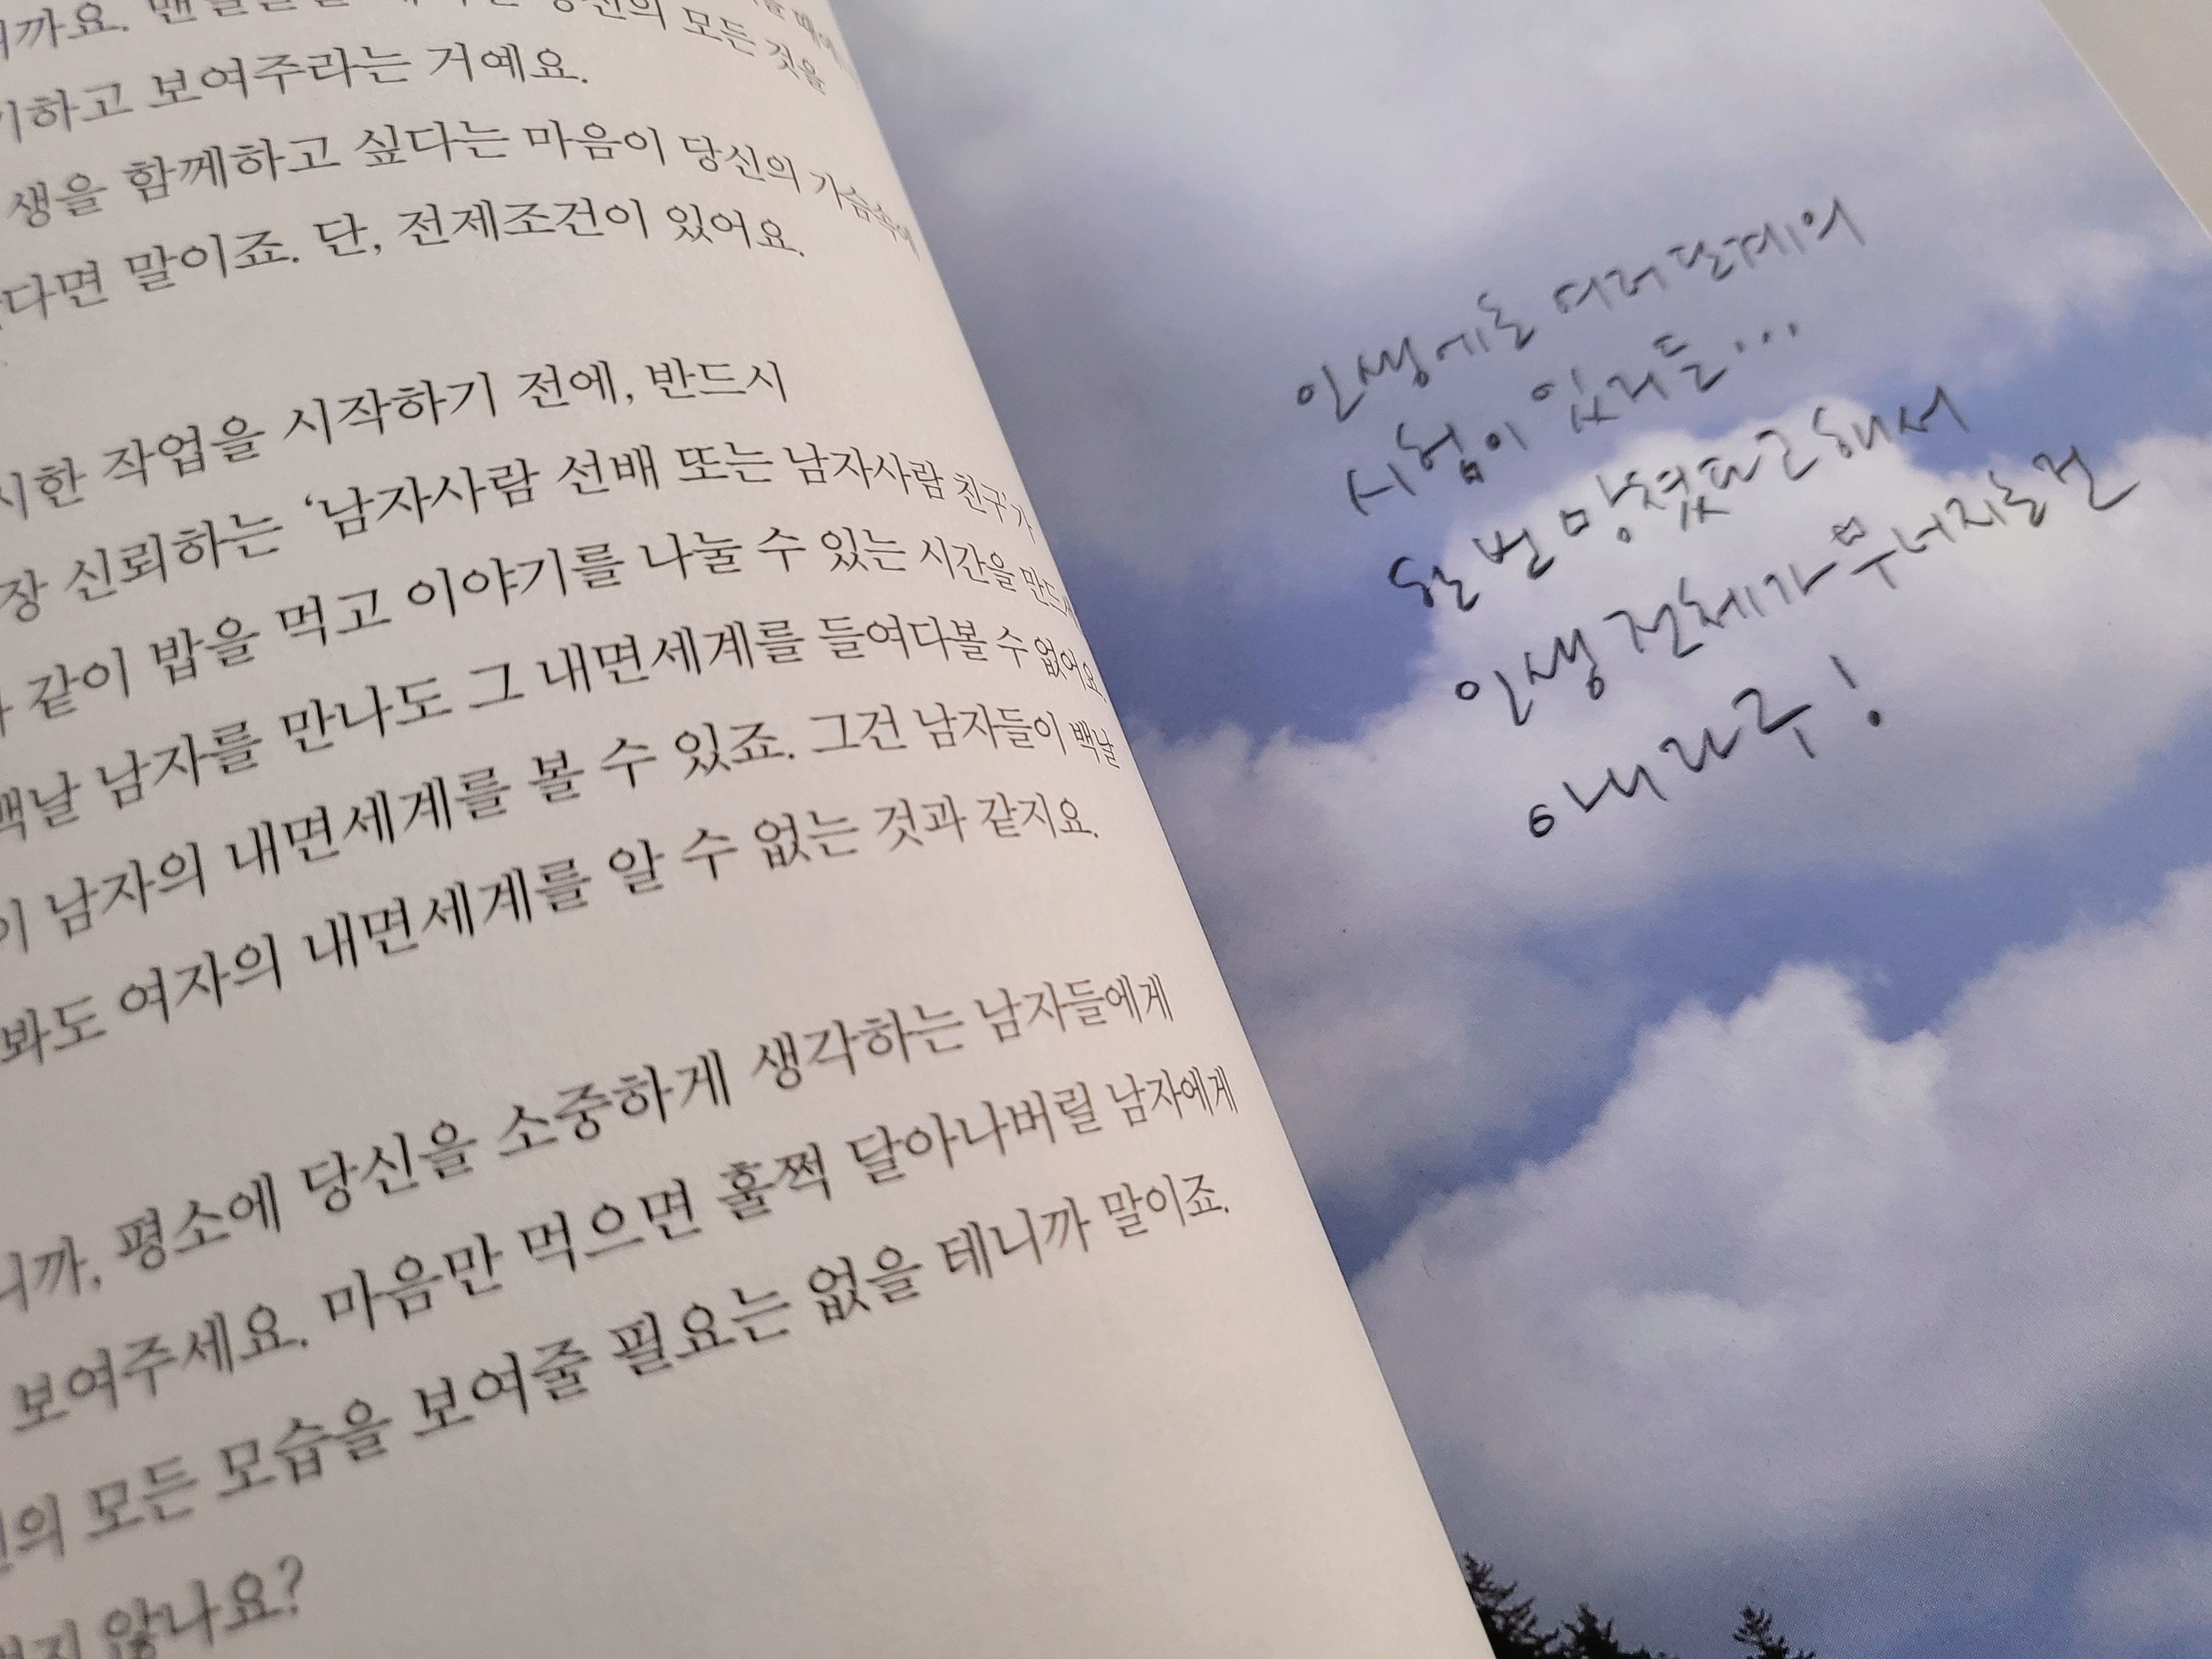 모든 것을
하고 보여주라는 거예요.
생을 함께하고 싶다는 마음이 당신의 가슴속에
다면 말이죠. 단, 전제조건이 있어요.
시한 작업을 시작하기 전에, 반드시
장 신뢰하는 ‘남자사람 선배 또는 남자사람 친구’가
같이 밥을 먹고 이야기를 나눌 수 있는 시간을 만드세
백날 남자를 만나도 그 내면세계를 들여다볼 수 없어요
이 남자의 내면세계를 볼 수 있죠. 그건 남자들이 백날
봐도 여자의 내면세계를 알 수 없는 것과 같지요.
니까, 평소에 당신을 소중하게 생각하는 남자들에게
보여주세요. 마음만 먹으면 훌쩍 달아나버릴 남자에게
의 모든 모습을 보여줄 필요는 없을 테니까 말이죠.
지 않나요?
인생에는 여러 단계의
시험이 있거든...
한 번 망쳤다고 해서
인생 전체가 무너지는 건
아니라구!